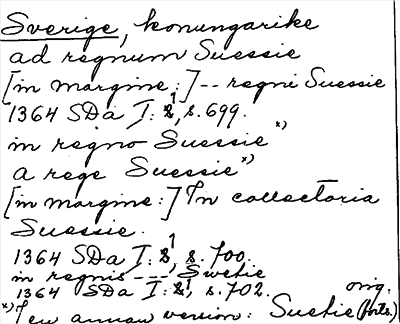 Sverige, konungarike
ad regnum Suessie
[in margine:] -- regni Suessie
1364 SDa I: 1, s. 699.
in regno Suessie x)
a rege Suessie x)
[in margine:] In collectoria
Suessie.
1364 SDa I: 1, s. 700.
in regnis --- Swetie
1364 SDa I: 1, s. 702. orig.
x) I en annan version: Suetie (forts.)